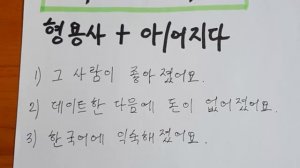 형용사 + 아/어지다
1) 그 사람이 좋아졌어요.
2) 데이트한 다음에 돈이 없어졌어요.
3) 한국어에 익숙해졌어요.